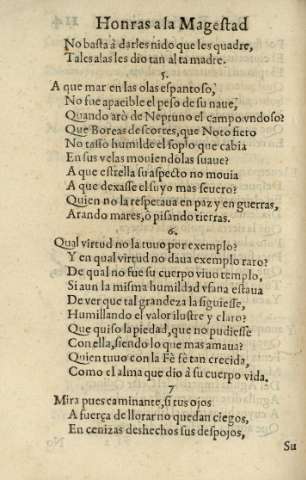 Honras a la Magestad
No basta à darles nido que les quadre,
Tales alas les dio tan alta madre.
5.
A que mar en las olas espantoso,
No fue apacible el peso de su naue,
Quando arò de Neptuno el campo vndoso?
Que Boreas descortes, que Noto fiero
No tasso humilde el soplo que cabia
En sus velas mouiendolas suaue?
A que estrella su aspecto no mouia
A que dexasse el suyo mas seuero?
Quien no la respetaua en paz y en guerras,
Arando mares, ò pisando tierras.
6.
Qual virtud no la tuuo por exemplo?
Y en qual virtud no daua exemplo raro?
De qual no fue su cuerpo viuo templo,
Si aun la misma humildad vfana estaua
De ver que tal grandeza la siguiesse,
Humillando el valor ilustre y claro?
Que quiso la piedad, que no pudiesse
Con ella, siendo lo que mas amaua?
Quien tuuo con la Fè fè tan crecida,
Como el alma que dio à su cuerpo vida.
7
Mira pues caminante, si tus ojos
A fuerça de llorar no quedan ciegos,
En cenizas deshechos sus despojos,
Su